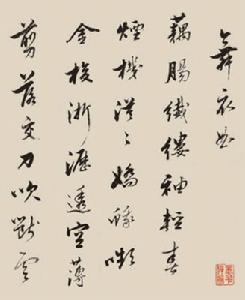 舞衣曲
藕腸纖縷抽輕春
煙機漠〻嬌蛾嚬
金梭淅瀝透空薄
剪落交刀吹斷雲